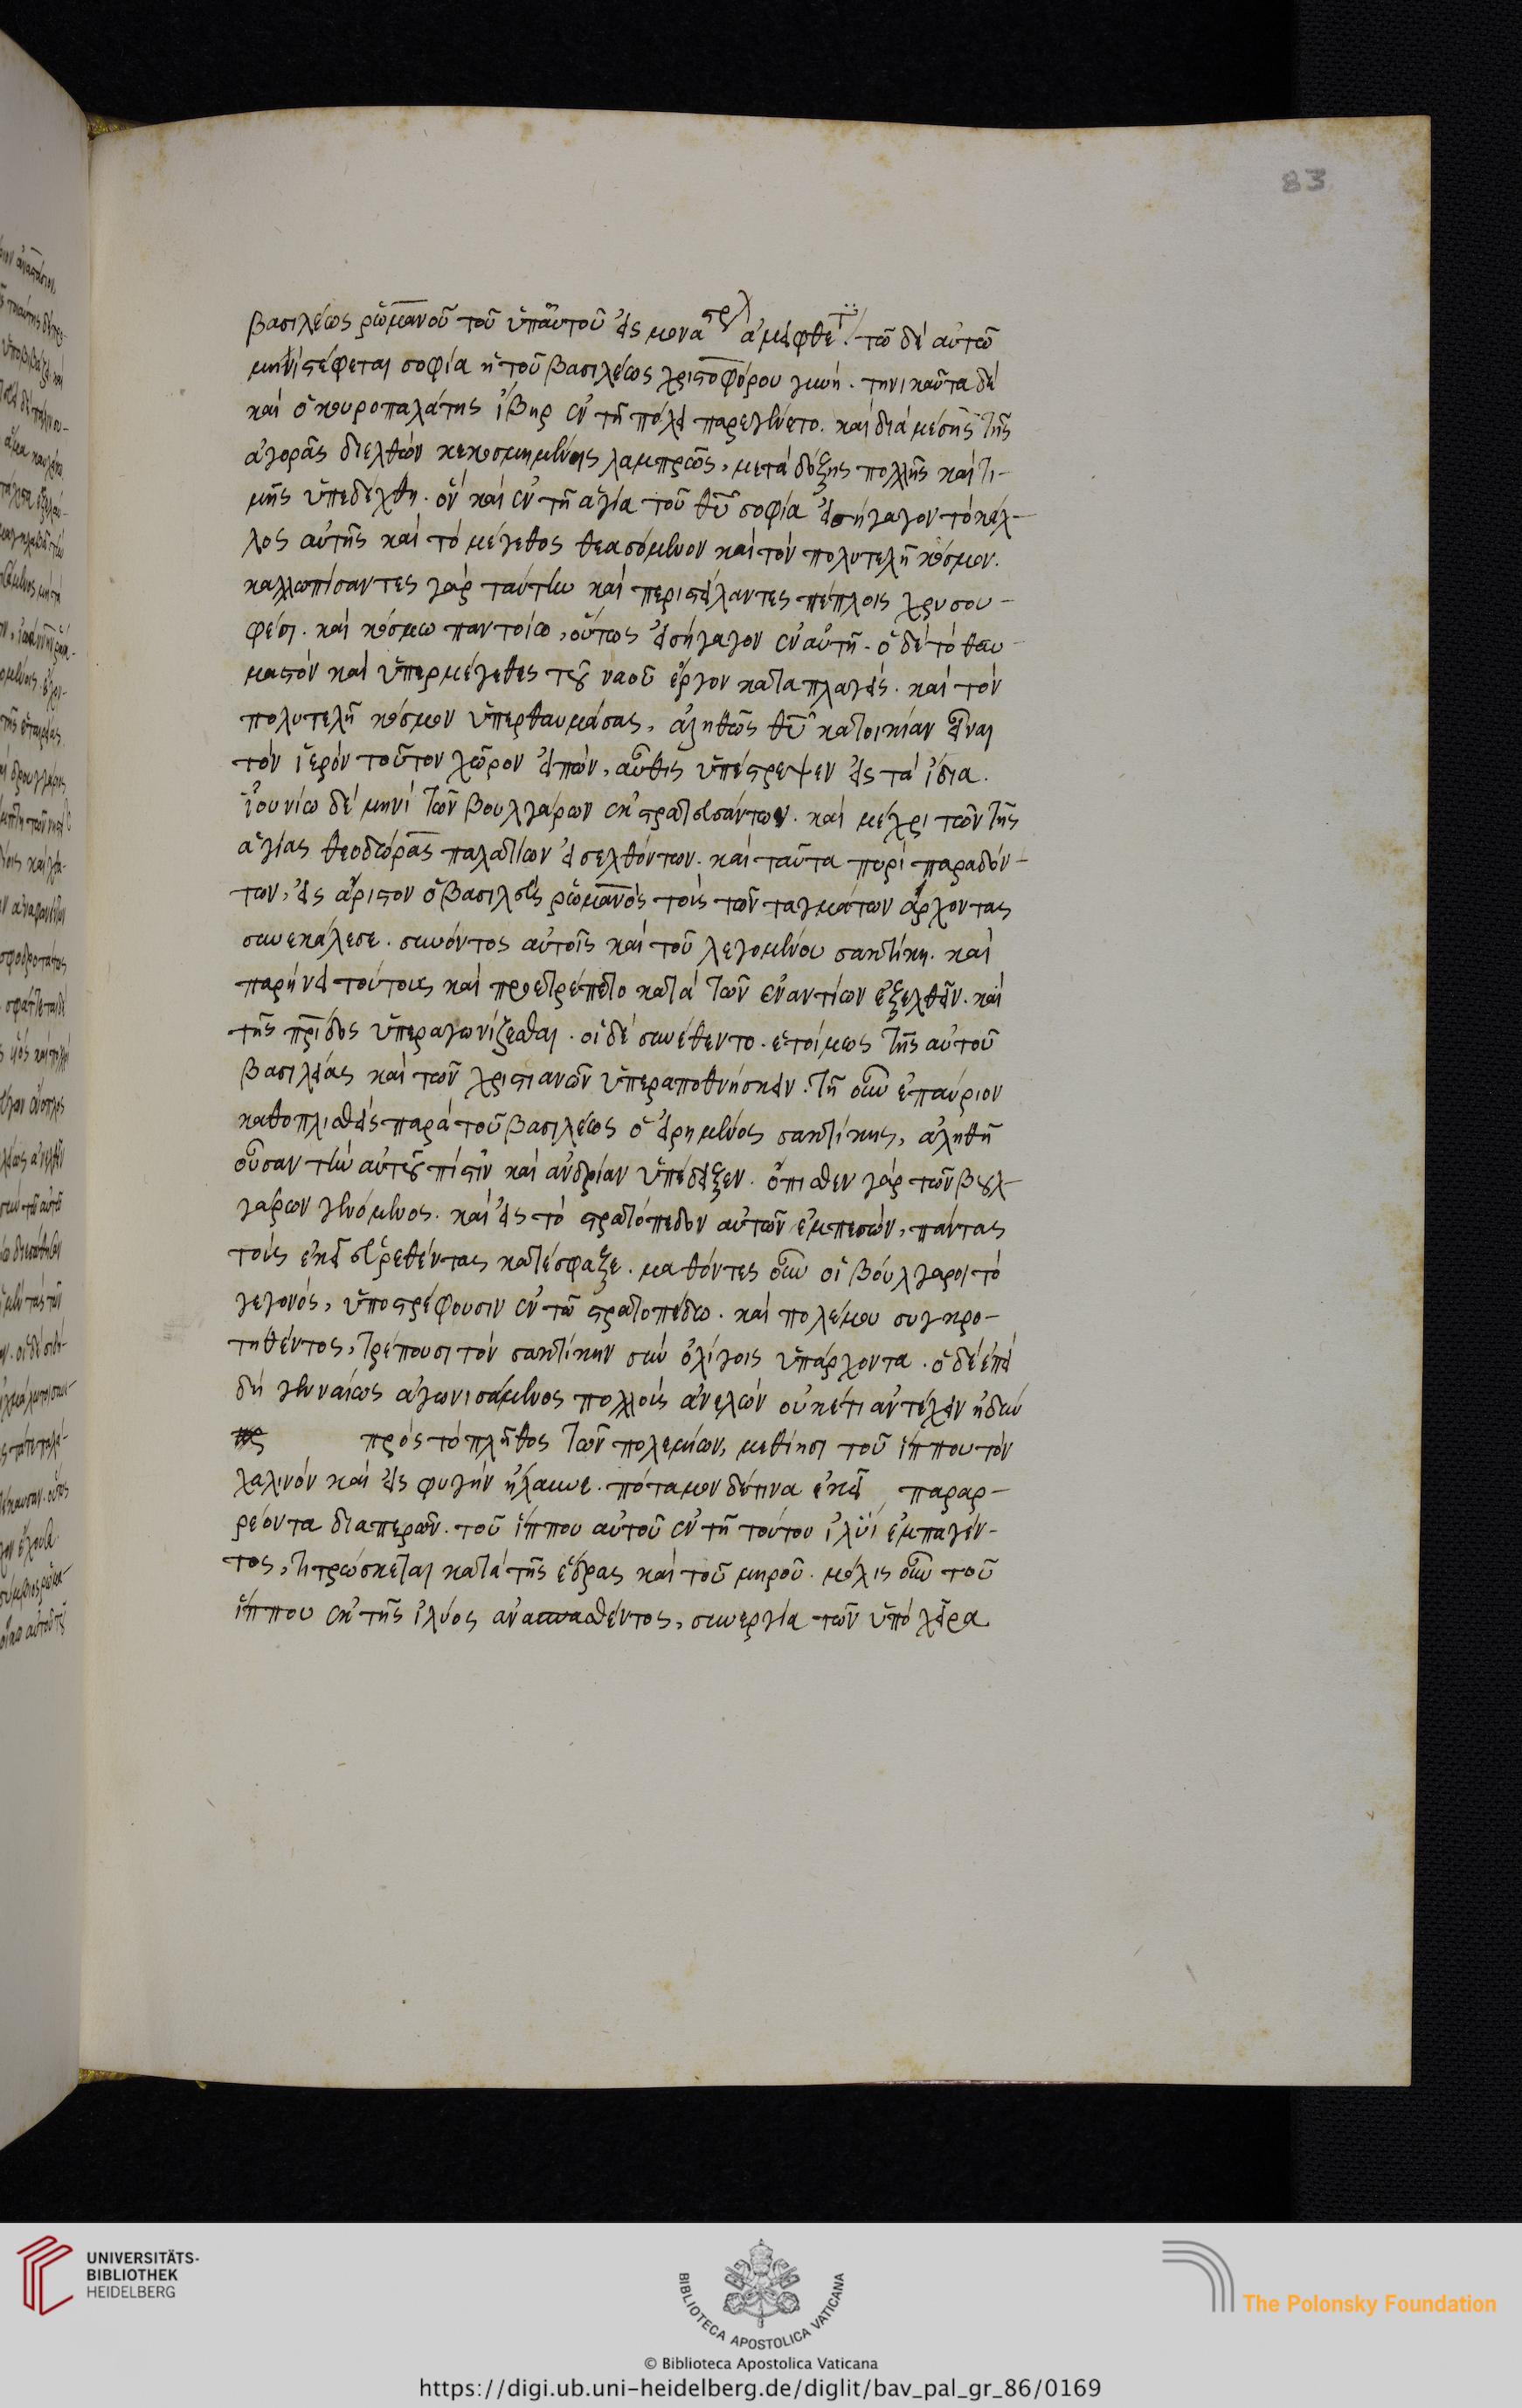 83
βασιλέως ῥωμανοῦ τοῦ ὑπ' αὐτοῦ εἰς μοναστρλ ἀμειφθέντ. τῶ δὲ αὐτῶ
μηνὶ στέφεται σοφία ἡ τοῦ βασιλέως χριστοφόρου γυνή. τηνικαῦτα δὲ
καὶ ὁ κουροπαλάτης ἴβηρ ἐν τῆ πόλει παρεγένετο. καὶ διὰ μέσης τῆς
ἀγορᾶς διελθὼν κεκοσμημένης λαμπρῶς, μετὰ δόξης πολλῆς καὶ τι-
μῆς ὑπεδέχθη. ὃν καὶ ἐν τῆ ἁγία τοῦ θῦ σοφία εἰσήγαγον τὸ κάλ-
λος αὐτῆς καὶ τὸ μέγεθος θεασόμενον καὶ τὸν πολυτελῆ κόσμον.
καλλωπίσαντες γὰρ ταύτην καὶ περιστείλαντες πέπλοις χρυσου-
φέσι. καὶ κόσμω παντοίω, οὕτως εἰσήγαγον ἐν αὐτῆ. ὁ δὲ τὸ θαυ-
μαστὸν καὶ ὑπερμέγεθες τοῦ ναοῦ ἔργον καταπλαγείς. καὶ τὸν
πολυτελῆ κόσμον ὑπερθαυμάσας, ἀληθῶς θῦ κατοικίαν εἶναι
τὸν ἱερὸν τοῦτον χῶρον εἰπών, αὖθις ὑπέστρεψεν εἰς τὰ ἴδια.
ἰουνίω δὲ μηνὶ τῶν βουλγάρων ἐκστρατευσάντων. καὶ μέχρι τῶν τῆς
ἁγίας θεοδώρας παλατίων εἰσελθόντων. καὶ ταῦτα πυρὶ παραδόν-
των, εἰς ἄριστον ὁ βασιλεὺς ῥωμανὸς τοὺς τῶν ταγμάτων ἄρχοντας
συνεκάλεσε. συνόντος αὐτοῖς καὶ τοῦ λεγομένου σακτίκη. καὶ
παρήνει τούτοις καὶ προετρέπετο κατὰ τῶν ἐναντίων ἐξελθεῖν. καὶ
τῆς πρίδος ὑπεραγωνίζεσθαι. οἱ δὲ συνέθεντο. ἑτοίμως τῆς αὐτοῦ
βασιλείας καὶ τῶν χριστιανῶν ὑπεραποθνήσκειν. τῆ οὖν ἐπαύριον
καθοπλισθεὶς παρὰ τοῦ βασιλέως ὁ εἰρημένος σακτίκης, ἀληθῆ
οὖσαν τὴν αὐτοῦ πίστιν καὶ ἀνδρίαν ὑπέδειξεν. ὄπισθεν γὰρ τῶν βουλ-
γάρων γενόμενος. καὶ εἰς τὸ στρατόπεδον αὐτῶν ἐμπεσών, πάντας
τοὺς ἐκεῖ εὑρεθέντας κατέσφαξε. μαθόντες οὖν οἱ βούλγαροι τὸ
γεγονός, ὑποστρέφουσιν ἐν τῶ στρατοπέδω. καὶ πολέμου συγκρο-
τηθέντος, τρέπουσι τὸν σακτίκην σὺν ὀλίγοις ὑπάρχοντα. ὁ δὲ ἐπει
δὴ γενναίως ἀγωνισάμενος πολλοὺς ἀνελὼν οὐκέτι ἀντέχειν ἠδύν
πρὸς τὸ πλῆθος τῶν πολεμίων, μεθίησι τοῦ ἵππου τὸν
χαλινὸν καὶ εἰς φυγὴν ἤλαυνε. πόταμον δέ τινα ἐκεῖ παραρ-
ρέοντα διαπερῶν. τοῦ ἵππου αὐτοῦ ἐν τῆ τούτου ἰλύϊ ἐμπαγέν-
τος, τιτρώσκεται κατὰ τῆς ἕδρας καὶ τοῦ μηροῦ. μόλις οὖν τοῦ
ἵππου ἐκ τῆς ἰλύος ἀνασπασθέντος, συνεργία τῶν ὑπὸ χεῖρα
UNIVERSITÄTS-
BIBLIOTHEK
HEIDELBERG
BIBLIOTECA APOSTOLICA VATICANA
The Polonsky Foundation
© Biblioteca Apostolica Vaticana
https://digi.ub.uni-heidelberg.de/diglit/bav_pal_gr_86/0169